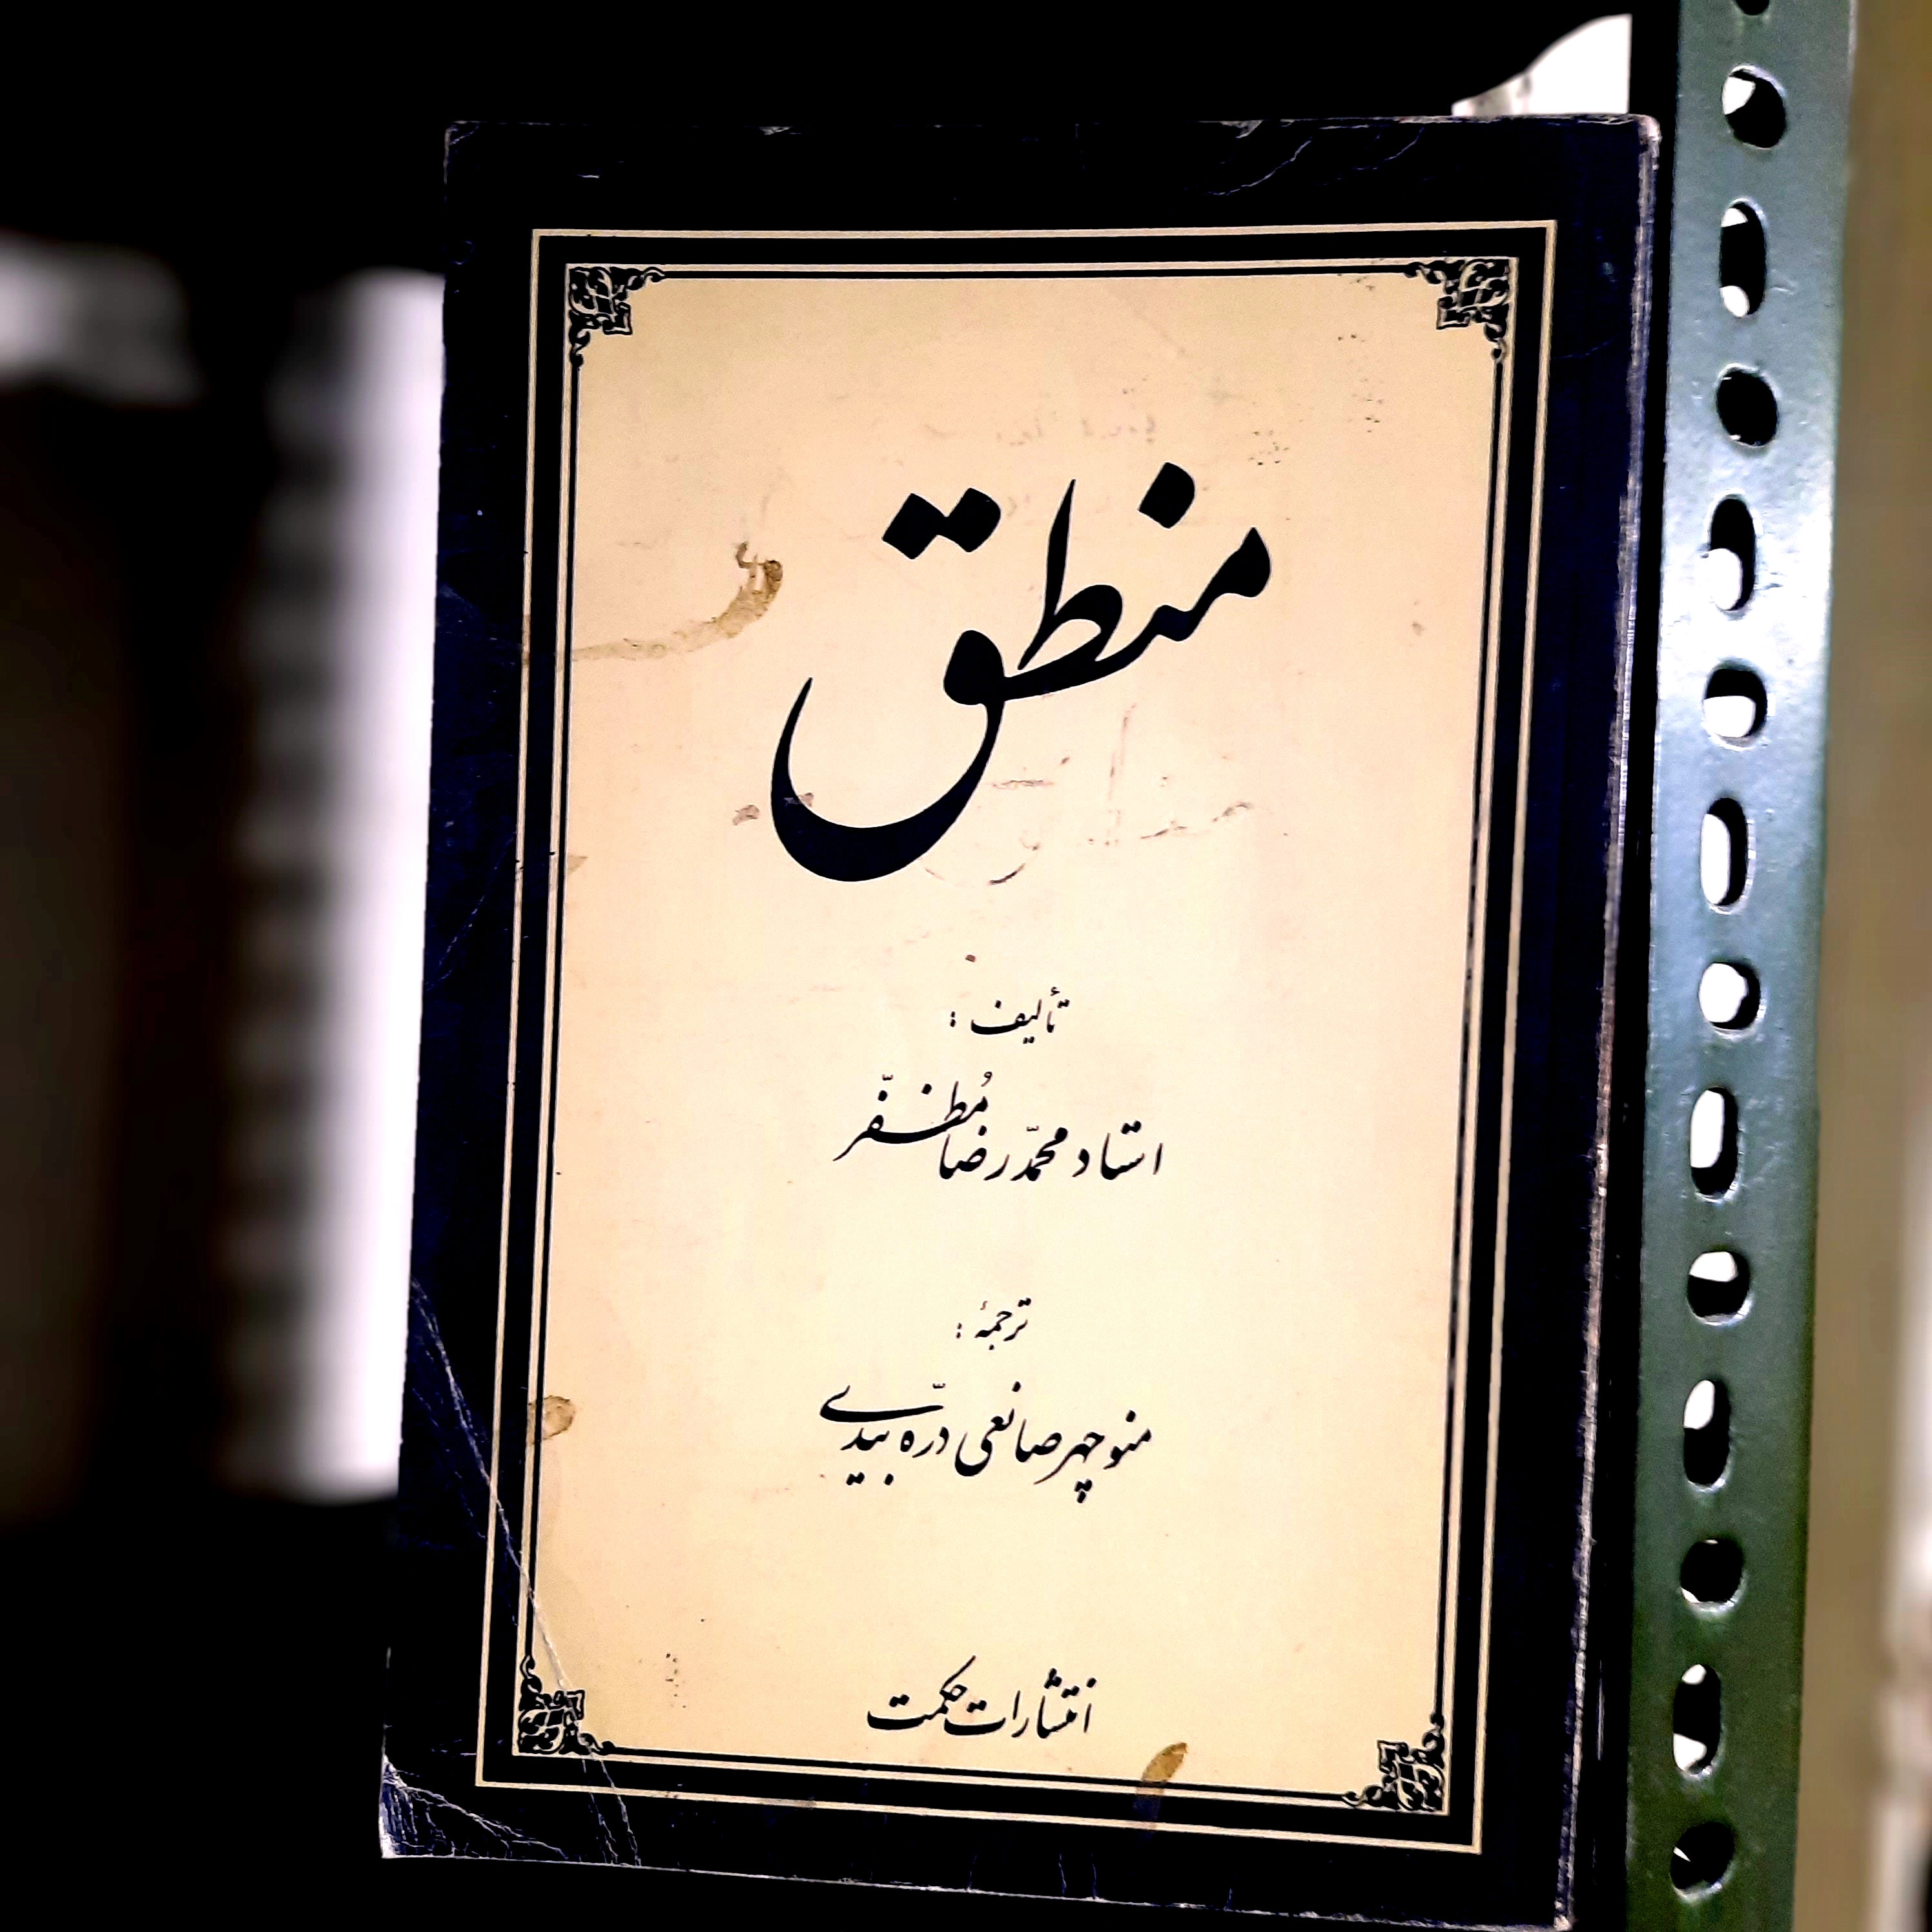 منطق
تألیف :
استاد محمّدرضا مُظفّر
ترجمهٔ :
منوچهر صانعی درّه بیدی
انتشارات حکمت